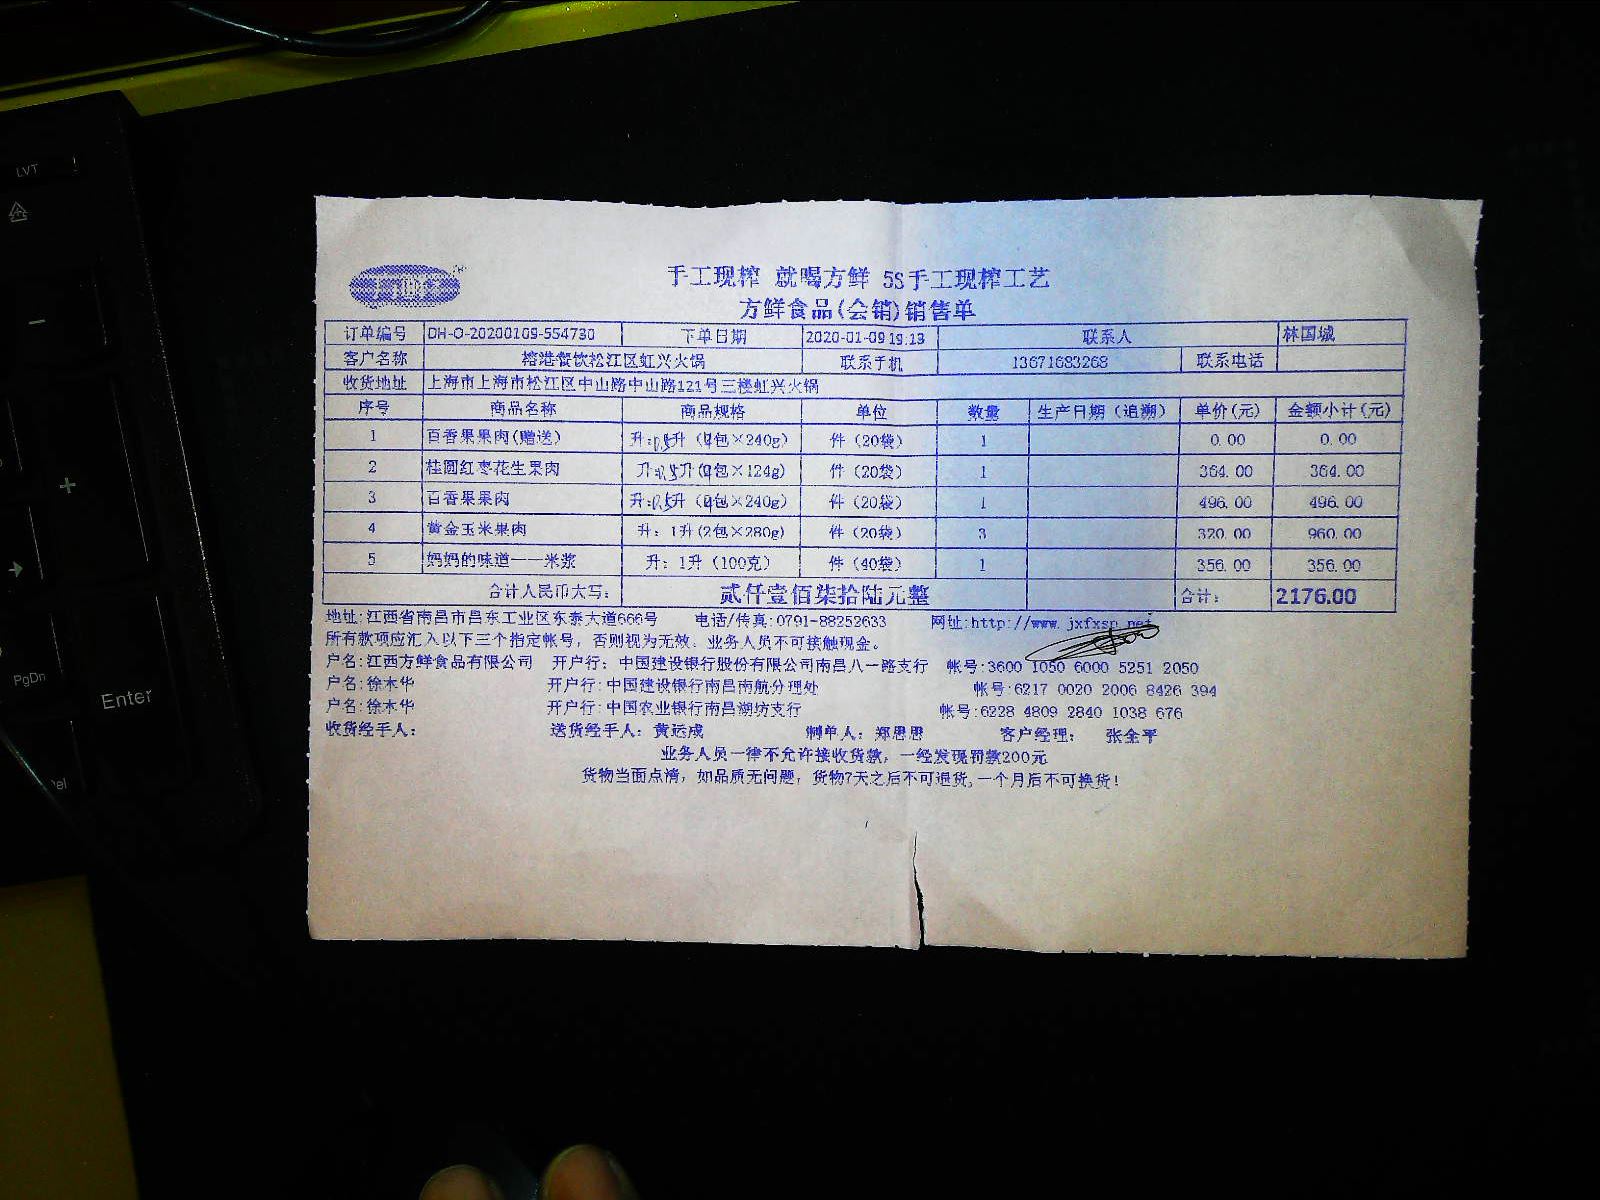 LVT
PgDn
Enter
手工现榨 就喝方鲜 5S手工现榨工艺
方鲜食品(会销)销售单
订单编号 DH-O-20200109-554730 下单日期 2020-01-09 19:13 联系人 林国城
客户名称 榕港餐饮松江区虹兴火锅 联系手机 13671683268 联系电话
收货地址 上海市上海市松江区中山路中山路121号三楼虹兴火锅
序号 商品名称 商品规格 单位 数量 生产日期（追溯） 单价(元) 金额小计(元)
1 百香果果肉(赠送) 升:0.5升（4包×240g） 件（20袋） 1 0.00 0.00
2 桂圆红枣花生果肉 升:0.5升（4包×124g） 件（20袋） 1 364.00 364.00
3 百香果果肉 升:0.5升（4包×240g） 件（20袋） 1 496.00 496.00
4 黄金玉米果肉 升：1升(2包×280g) 件（20袋） 3 320.00 960.00
5 妈妈的味道——米浆 升：1升（100克） 件（40袋） 1 356.00 356.00
合计人民币大写： 贰仟壹佰柒拾陆元整 合计： 2176.00
地址:江西省南昌市昌东工业区东泰大道666号 电话/传真:0791-88252633 网址:http://www.jxfxsp.net
所有款项应汇入以下三个指定帐号，否则视为无效。业务人员不可接触现金。
户名:江西方鲜食品有限公司 开户行：中国建设银行股份有限公司南昌八一路支行 帐号:3600 1050 6000 5251 2050
户名:徐木华 开户行:中国建设银行南昌南航分理处 帐号:6217 0020 2006 8426 394
户名:徐木华 开户行:中国农业银行南昌湖坊支行 帐号:6228 4809 2840 1038 676
收货经手人： 送货经手人：黄运成 制单人：郑思思 客户经理： 张全平
业务人员一律不允许接收货款，一经发现罚款200元
货物当面点清，如品质无问题，货物7天之后不可退货,一个月后不可换货！